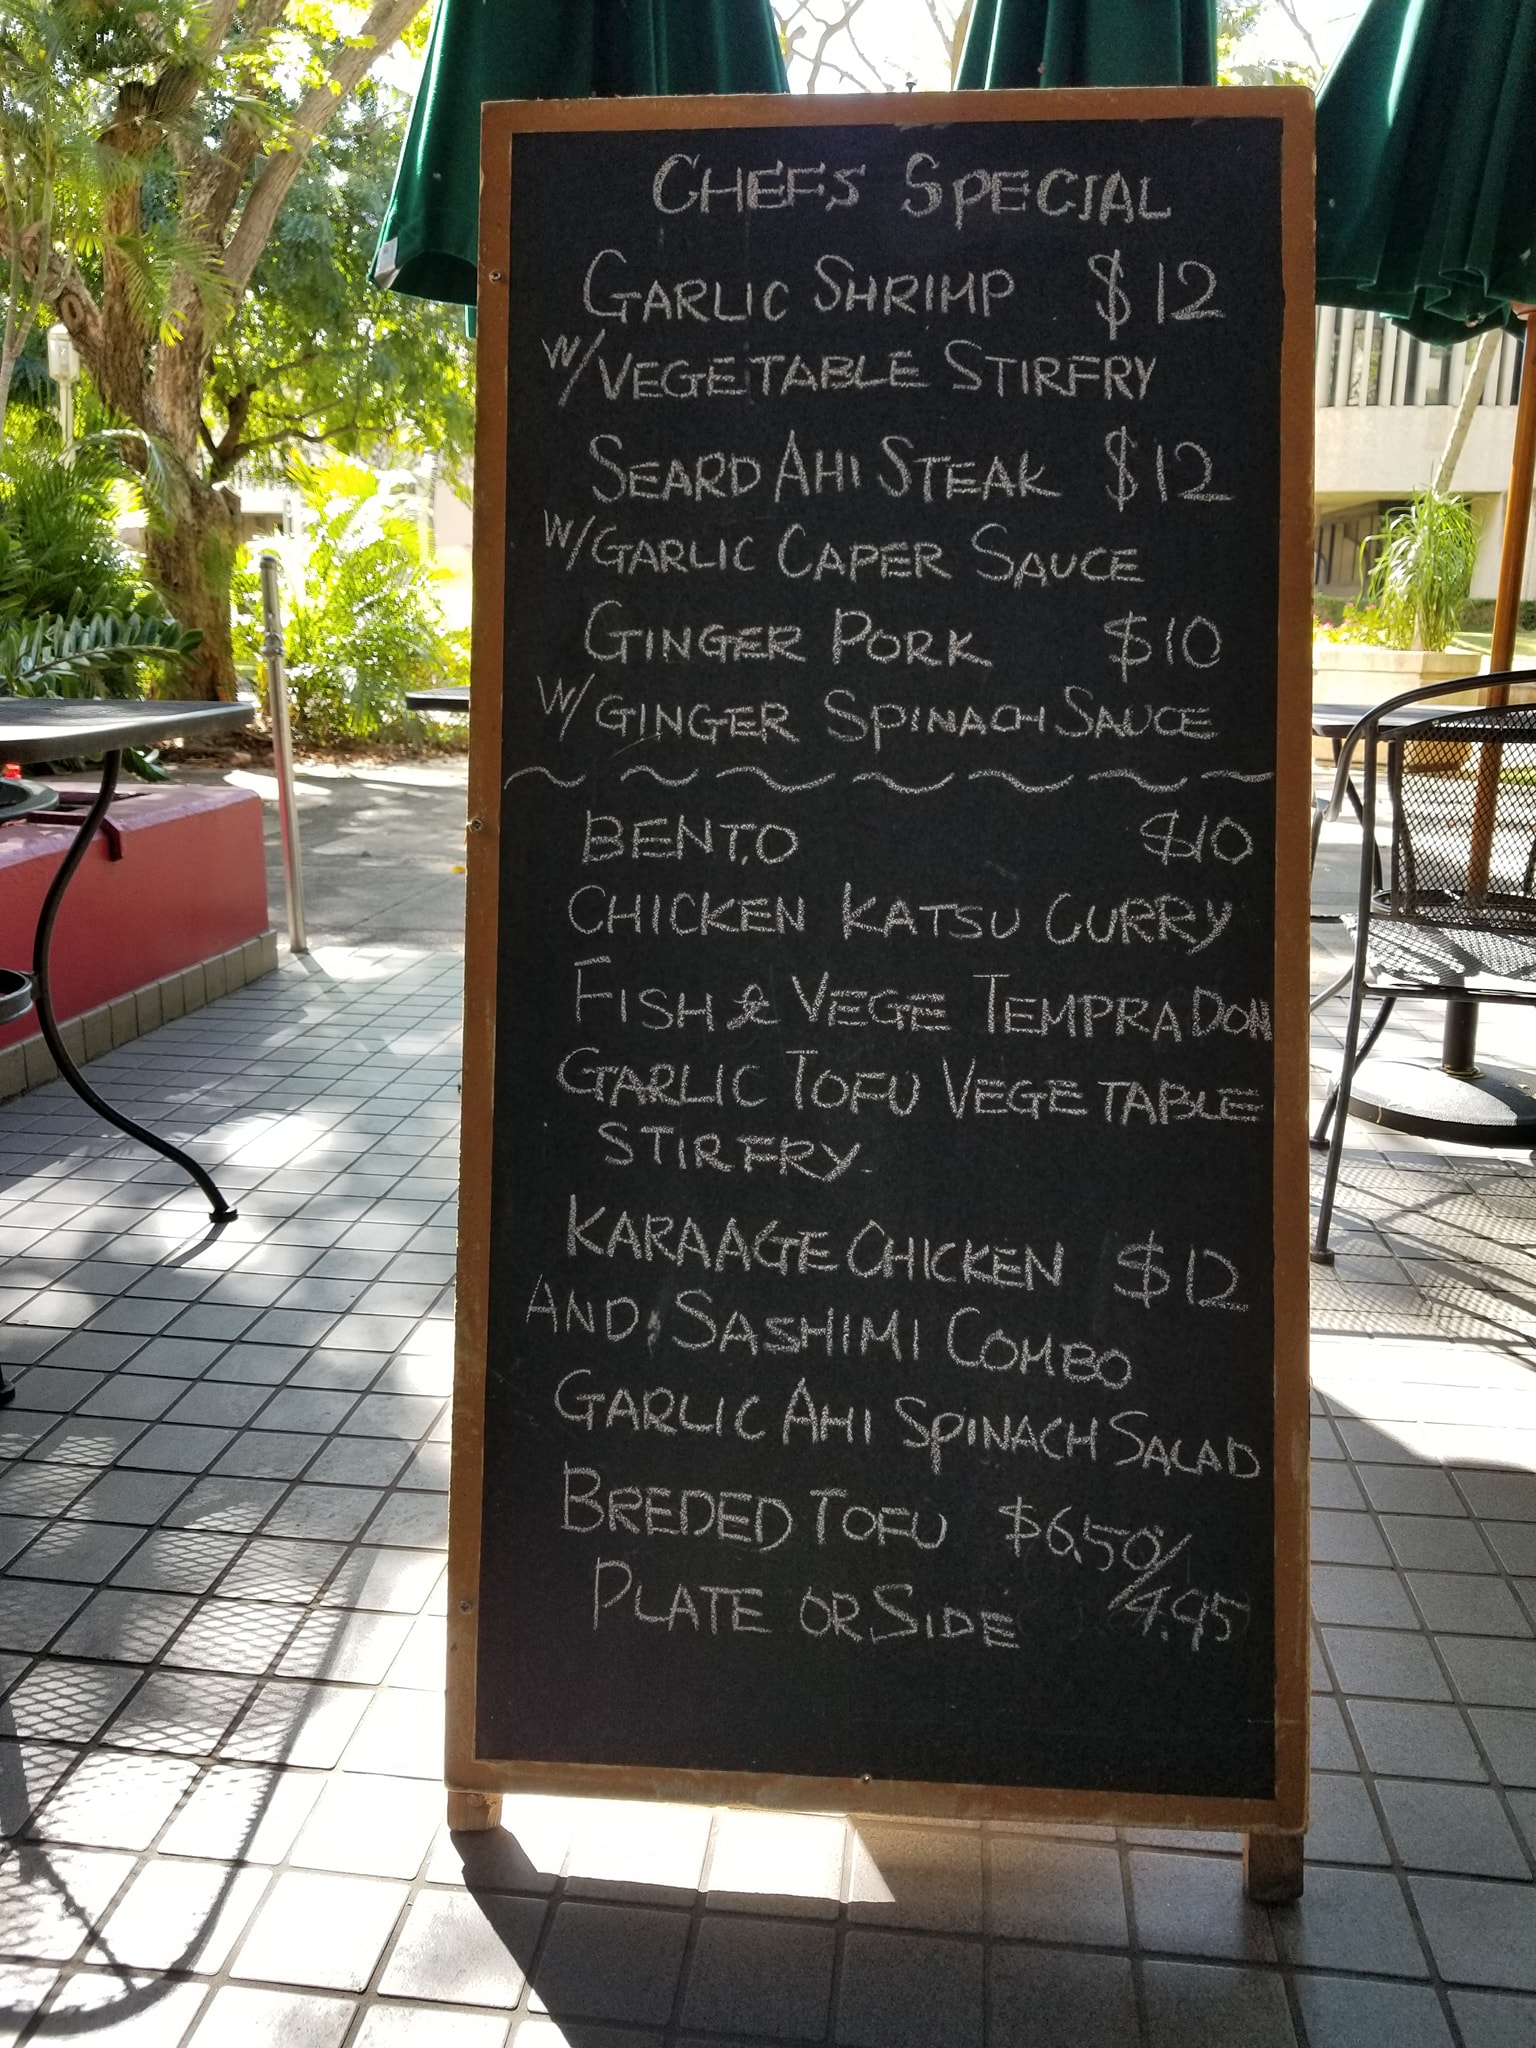 CHEFS SPECIAL
GARLIC SHRIMP $12
W/VEGETABLE STIRFRY
SEARD AHI STEAK $12
W/GARLIC CAPER SAUCE
GINGER PORK $10
W/GINGER SPINACH SAUCE
BENTO $10
CHICKEN KATSU CURRY
FISH & VEGE TEMPRA DON
GARLIC TOFU VEGETABLE
STIRFRY
KARAAGE CHICKEN $12
AND SASHIMI COMBO
GARLIC AHI SPINACH SALAD
BREDED TOFU $6.50/
PLATE OR SIDE 4.95